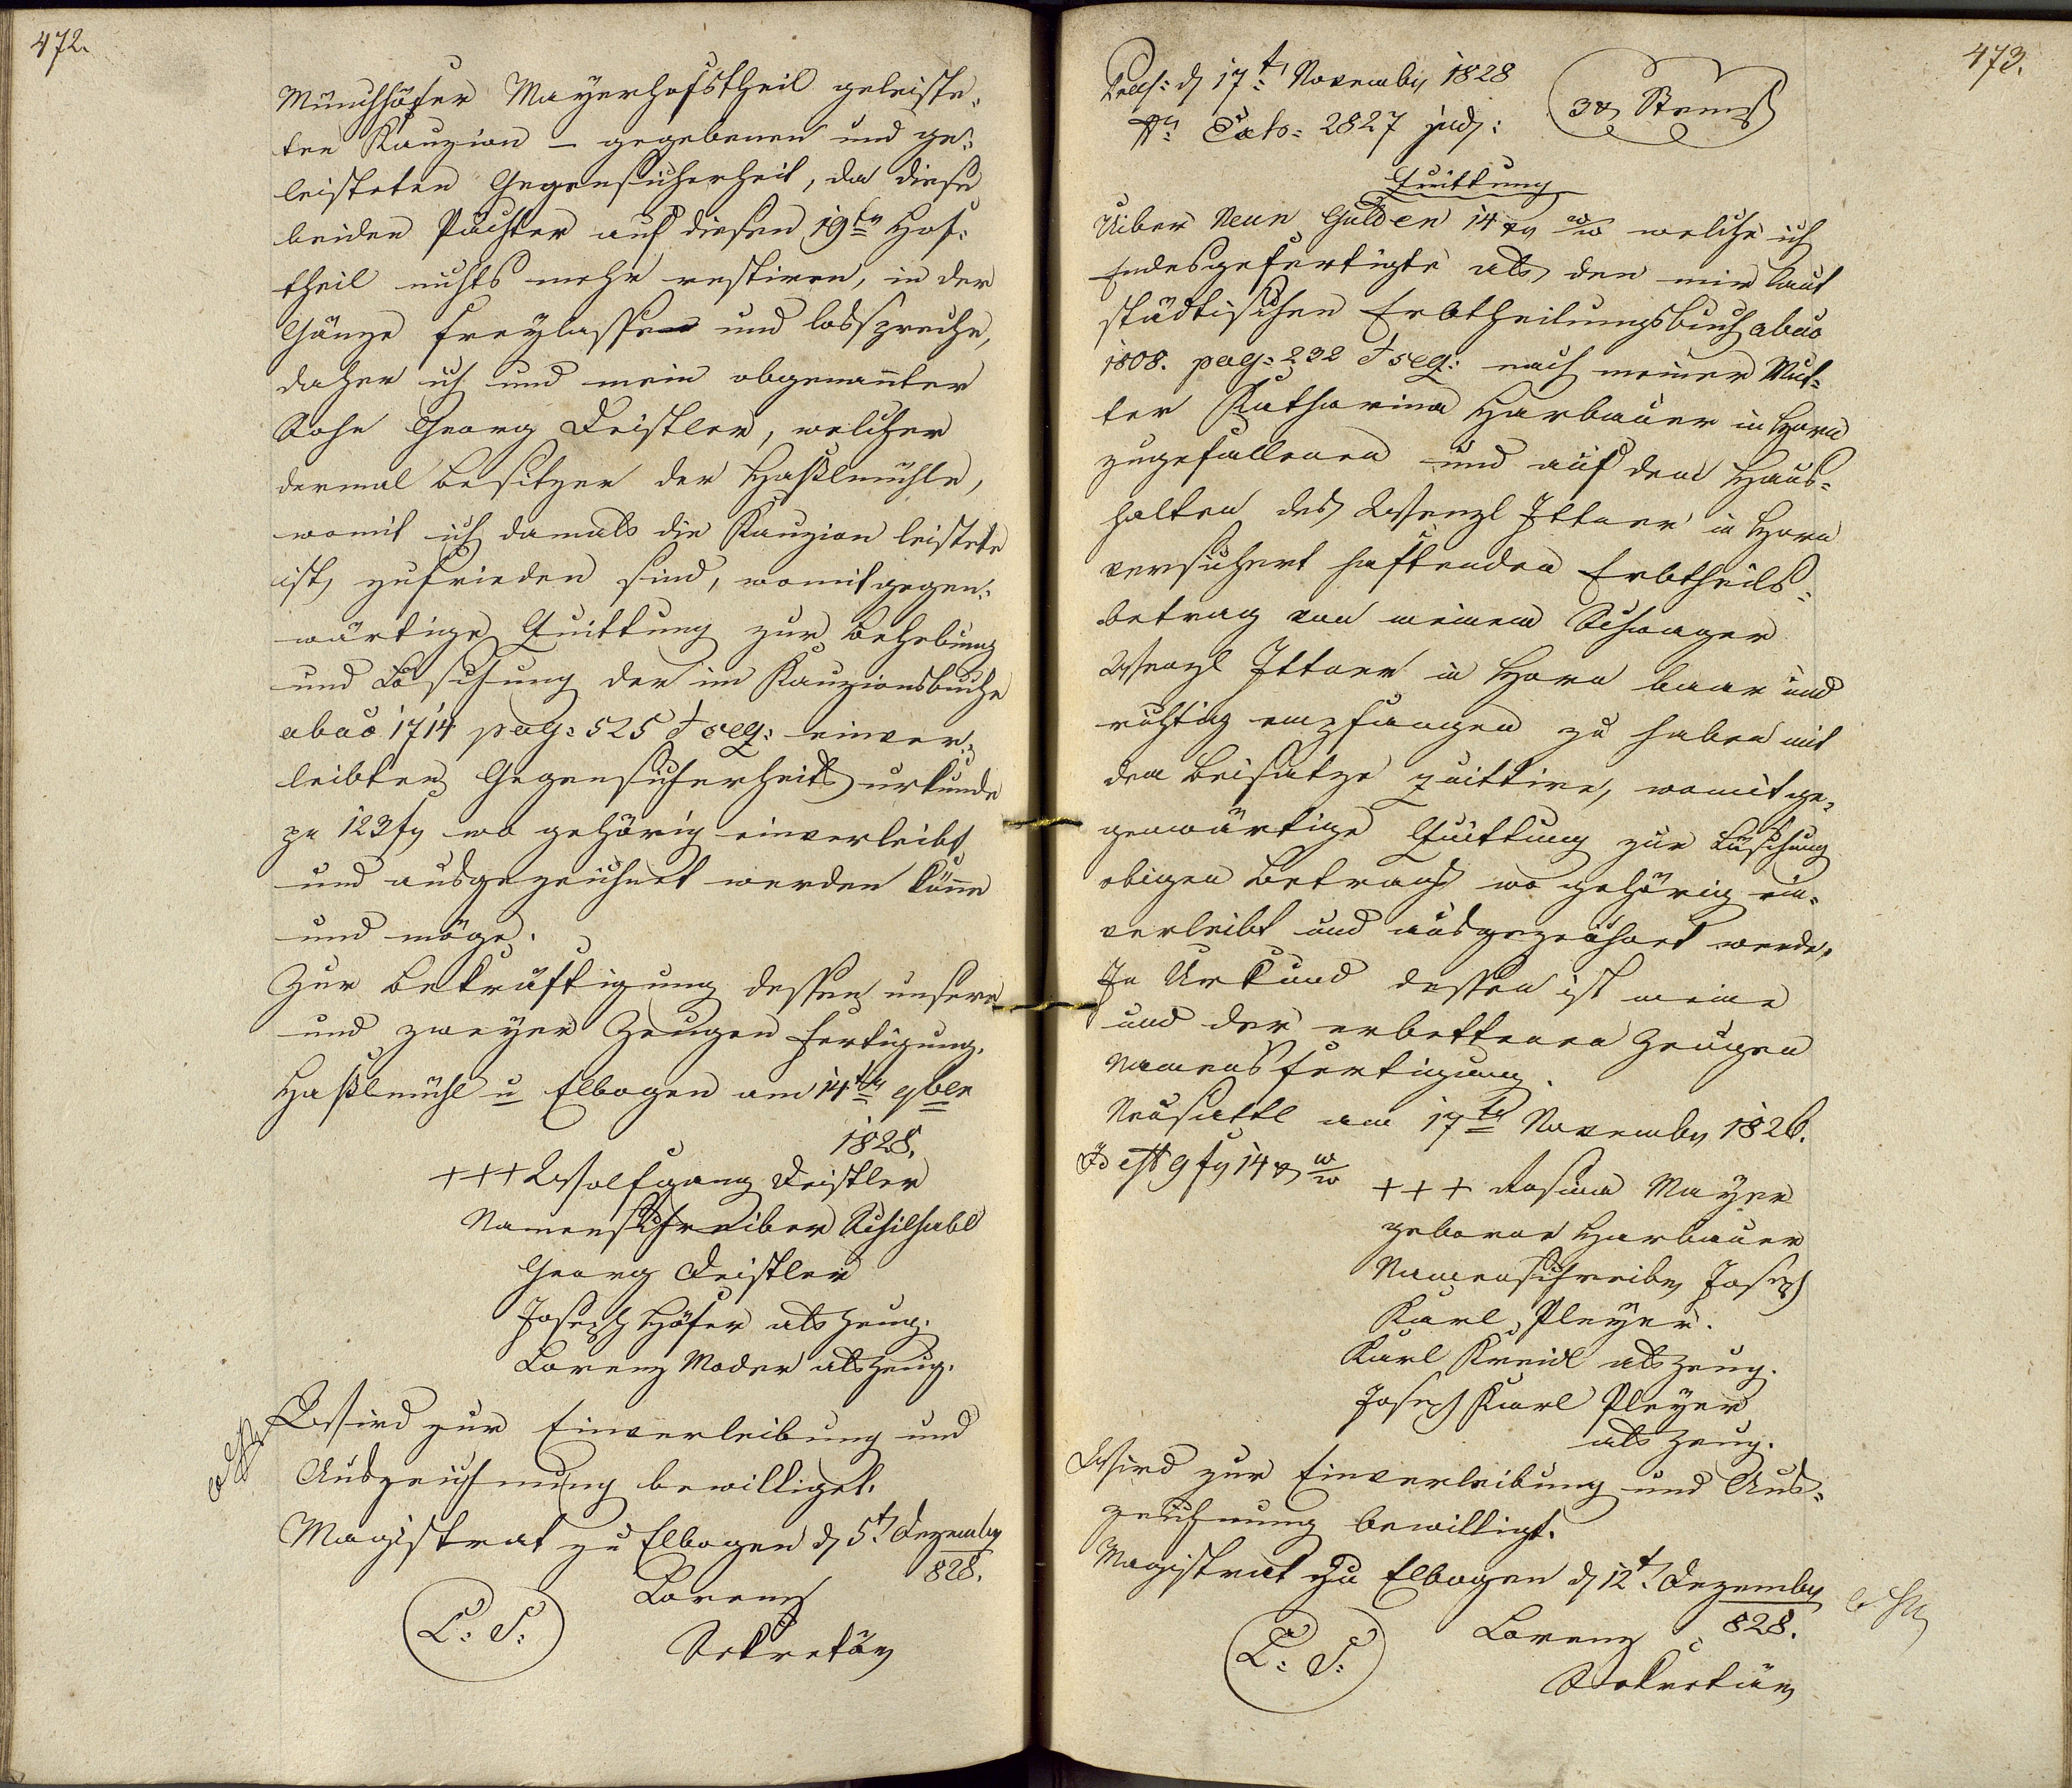 472.
Münchhöfer Mayerhofstheil geleiste,
ten Kauzion – gegebenen und ge=
leisteten Gegensicherheit, da diese
beiden Pächter auf diesen 19tn Hof=
theil nichts mehr restiren, in der
Gänze freylasse und losspreche,
daher ich und mein obgenannter
Sohn Georg Deistler, welcher
dermal Besitzer der Haßlmühle,
womit ich damals die Kauzion leistete
ist, zufrieden sind, womit gegen=
wärtige Quittung zur Behebung
und Löschung der im Kauzionsbuche
abao 1714 pag: 525 & seq: einver=
leibten Gegensicherheitsurkunde
pr 123 fr wo gehörig einverleibt
und ausgezeichnet werden könne
und möge.
Zur Bekräftigung dessen unsere
und zweyer Zeugen Fertigung.
Haßlmühl u Elbogen am 14tn 9ber
1828.
+++ Wolfgang Deistler
Namensschreiber
Georg Deistler
Joseph Höfer als Zeug.
Lorenz Moder als Zeug.
Wird zur Einverleibung und
Auszeichnung bewilliget.
Magistrat zu Elbogen d 5t. Dezember
828.
L: S:
Lorenz
Sekretär
473.
Praes: d 17t: November 1828
No Exb: 2827 jud:
3 x Stempl
Quittung
Uiber Neun Gulden 14 xr W/W welche ich
Endesgefertigte als den mir laut
städtischen Erbtheilungsbuch abao
1808. pag: 232 & seq: nach meiner Mut=
ter Katharina Harbauer in Horn
zugefallenen und auf dem Haus=
halten des Wenzl Ittner in Horn
versichert haftenden Erbtheils=
betrag von meinem Schwager
Wenzl Ittner in Horn baar und
richtig empfangen zu haben mit
dem Beisatze quittire, womit ge=
genwärtige Quittung zur Löschung
obigen Betrags wo gehörig ein=
verleibt und ausgezeichnet werde.
In Urkund dessen ist meine
und der erbettenen Zeugen
Namensfertigung.
Neusattl am 17tn November 1828.
Id est 9 fr 14 x W/W
+++ Rosina Mayer
geborne Harbauer
Namensschreiber Joseph
Karl Pleyer.
Karl Kreidl als Zeug.
Joseph Karl Pleyer
als Zeug.
Wird zur Einverleibung und Aus=
zeichnung bewilligt.
Magistrat zu Elbogen d 12t. Dezember
828.
L: S:
Lorenz
Sekretär